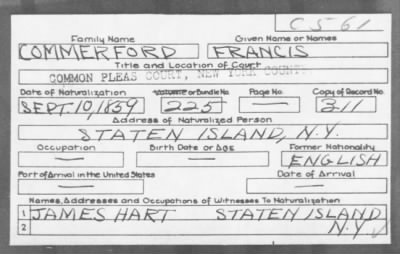 C561
Family Name Given Name or Names
COMMERFORD FRANCIS
Title and Location of Court
COMMON PLEAS COURT, NEW YORK COUNTY
Date of Naturalization Volume or Bundle No. Page No. Copy of Record No.
SEPT. 10, 1859 225 — 311
Address of Naturalized Person
STATEN ISLAND, N.Y.
Occupation Birth Date or Age Former Nationality
— — ENGLISH
Port of Arrival in the United States Date of Arrival
— —
Names, Addresses and Occupations of Witnesses To Naturalization
1 JAMES HART STATEN ISLAND
2 N.Y. ✓